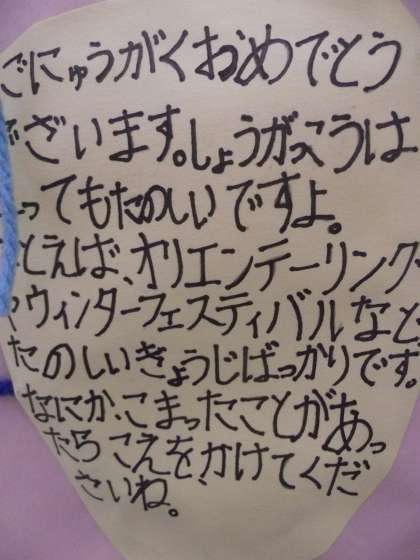 ごにゅうがくおめでとう
ございます。しょうがっこうは
とってもたのしいですよ。
たとえば、オリエンテーリング
やウィンターフェスティバルなど、
たのしいぎょうじばっかりです。
なにか、こまったことがあっ
たらこえを、かけてくだ
さいね。